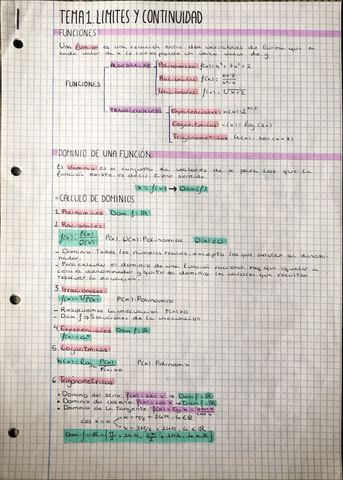 TEMA 1. LIMITES Y CONTINUIDAD
FUNCIONES
Una función es una relación entre dos variables de forma que a
cada valor de x le corresponde un único valor de y
ALGEBRAICAS
Polinómicas: f(x)=
Racionales: f(x)=
Irracionales: f(x)=
FUNCIONES
TRASCENDENTES
Exponenciales:
Logarítmicas:
Trigonométricas:
DOMINIO DE UNA FUNCIÓN
El dominio es el conjunto de valores de x para los que la
función existe, es decir, tiene sentido.
x → f(x) → Dom(f)
CALCULO DE DOMINIOS
1. Polinómicas Dom f = ℝ
2. Racionales
f(x)= P(x)/Q(x) P(x), Q(x): Polinomios Q(x) ≠ 0
- Dominio: Todos los números reales, excepto los que anulan al denomi-
nador.
- Para calcular el dominio de una función racional hay que igualar a
cero el denominador y quitar del dominio los valores que resultan
resolver la ecuación.
3. Irracionales
f(x)= √P(x) P(x): Polinomio
- Resolvemos la inecuación P(x)≥0
- Dom f → Soluciones de la inecuación
4. Exponenciales Dom f = ℝ
f(x)=
5. Logarítmicas
P(x) P(x): Polinomio
P(x)>0
6. Trigonométricas
• Dominio del seno: f(x)= sen x → Dom f = ℝ
• Dominio del coseno: f(x)= cos x → Dom f = ℝ
• Dominio de la tangente: f(x)= tg x = sen x / cos x
cos x = 0
x = π/2 + 2kπ, k∈ℝ
x = 3π/2 + 2kπ, k∈ℝ
Dom f = ℝ - {π/2 + 2kπ, 3π/2 + 2kπ, k∈ℝ}